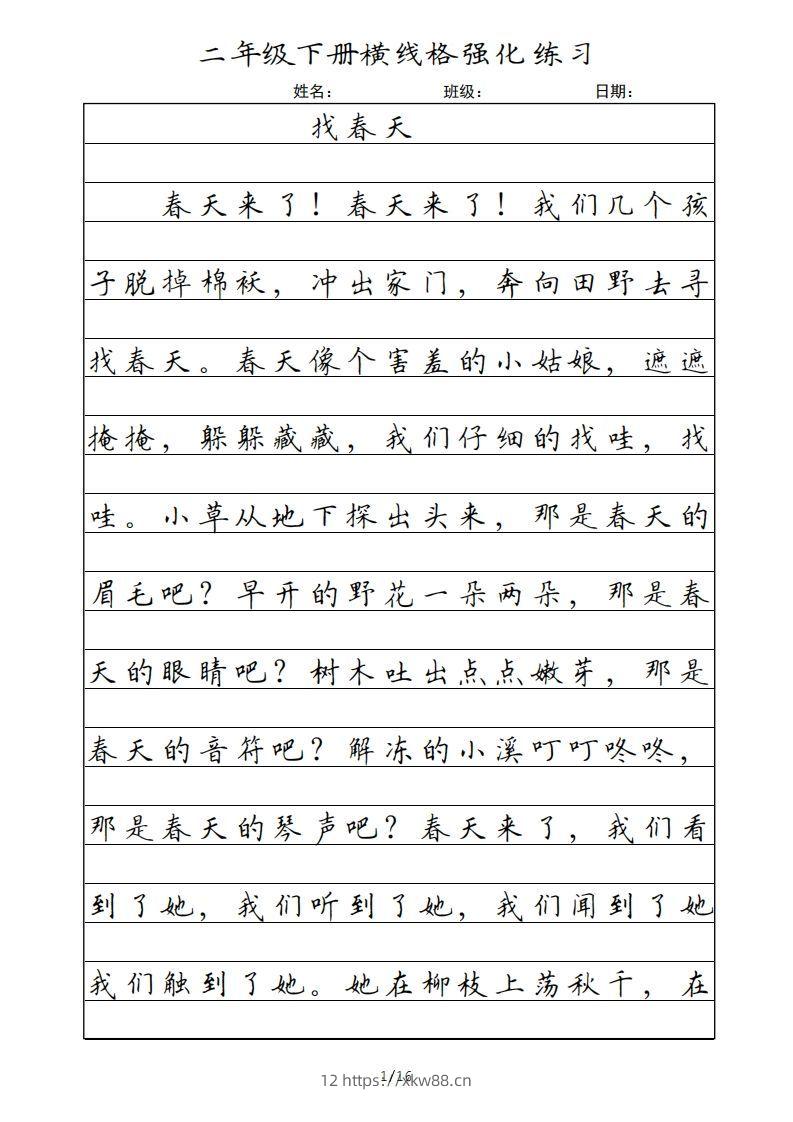 二年级下册横线格强化练习
姓名： 班级： 日期：
找春天
春天来了！春天来了！我们几个孩
子脱掉棉袄，冲出家门，奔向田野去寻
找春天。春天像个害羞的小姑娘，遮遮
掩掩，躲躲藏藏，我们仔细的找哇，找
哇。小草从地下探出头来，那是春天的
眉毛吧？早开的野花一朵两朵，那是春
天的眼睛吧？树木吐出点点嫩芽，那是
春天的音符吧？解冻的小溪叮叮咚咚，
那是春天的琴声吧？春天来了，我们看
到了她，我们听到了她，我们闻到了她
我们触到了她。她在柳枝上荡秋千，在
1/16
12 https://xkw88.cn